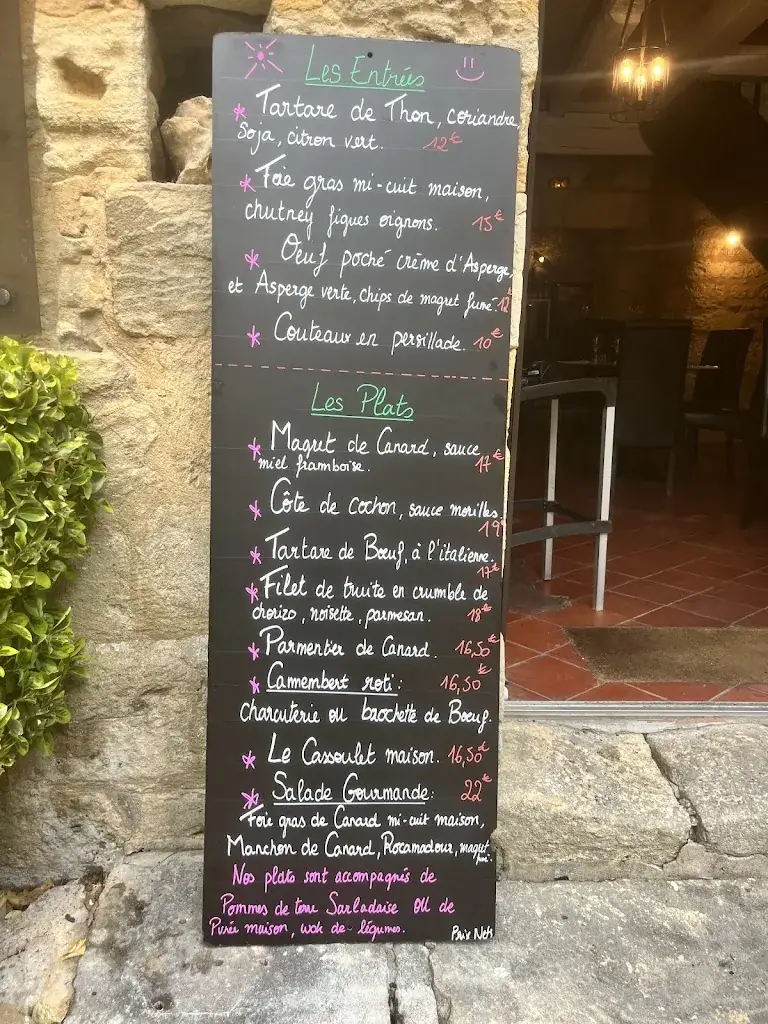 Les Entrées
* Tartare de Thon, coriandre,
Soja, citron vert. 12€
* Foie gras mi-cuit maison,
chutney figues oignons. 15€
* Oeuf poché crème d'Asperge,
et Asperge verte, chips de magret fumé. 12€
* Couteaux en persillade. 10€
Les Plats
* Magret de Canard, sauce
miel framboise. 17€
* Côte de Cochon, sauce morilles.
19€
* Tartare de Bœuf, à l'italienne.
17€
* Filet de truite en crumble de
chorizo, noisette, parmesan. 18€
* Parmentier de Canard. 16,50€
* Camembert roti: 16,50€
charcuterie ou brochette de Bœuf.
* Le Cassoulet maison. 16,50€
* Salade Gourmande: 22€
Foie gras de Canard mi-cuit maison,
Manchon de Canard, Rocamadour, magret
Nos plats sont accompagnés de
Pommes de terre Sarladaise OU de
Purée maison, wok de légumes.
Prix Nets